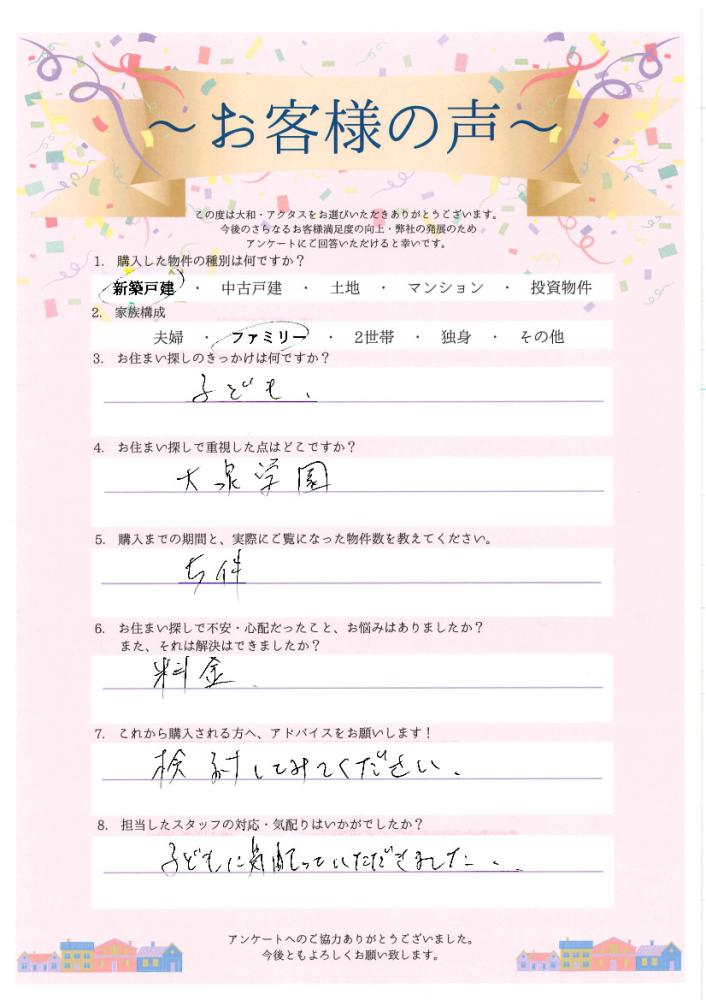 ～お客様の声～
この度は大和・アクタスをお選びいただきありがとうございます。
今後のさらなるお客様満足度の向上・弊社の発展のため
アンケートにご回答いただけると幸いです。
1. 購入した物件の種別は何ですか？
新築戸建 ・ 中古戸建 ・ 土地 ・ マンション ・ 投資物件
2. 家族構成
夫婦 ・ ファミリー ・ 2世帯 ・ 独身 ・ その他
3. お住まい探しのきっかけは何ですか？
子ども、
4. お住まい探しで重視した点はどこですか？
大泉学園
5. 購入までの期間と、実際にご覧になった物件数を教えてください。
5件
6. お住まい探しで不安・心配だったこと、お悩みはありましたか？
また、それは解決はできましたか？
料金、
7. これから購入される方へ、アドバイスをお願いします！
検討してみてください、
8. 担当したスタッフの対応・気配りはいかがでしたか？
子どもに気配っていただきました、
アンケートへのご協力ありがとうございました。
今後ともよろしくお願い致します。